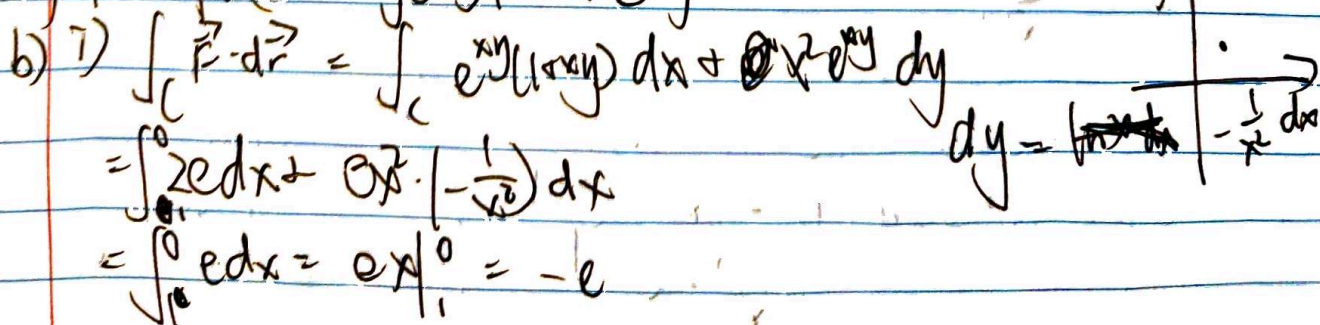 b) i) ∫_C F⃗·dr⃗ = ∫_C e^{xy}(1+xy) dx + x²e^{xy} dy
dy = -1/x² dx
= ∫_1^0 2e dx + ex²·(-1/x²) dx
= ∫_1^0 e dx = ex|_1^0 = -e